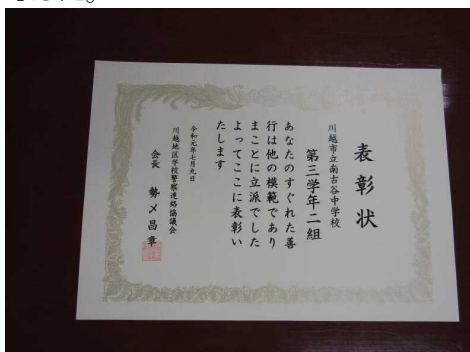 表彰状
川越市立南古谷中学校
第三学年二組
あなたのすぐれた善
行は他の模範であり
まことに立派でした
よってここに表彰い
たします
令和元年七月九日
川越地区学校警察連絡協議会
会長 勢〆昌章